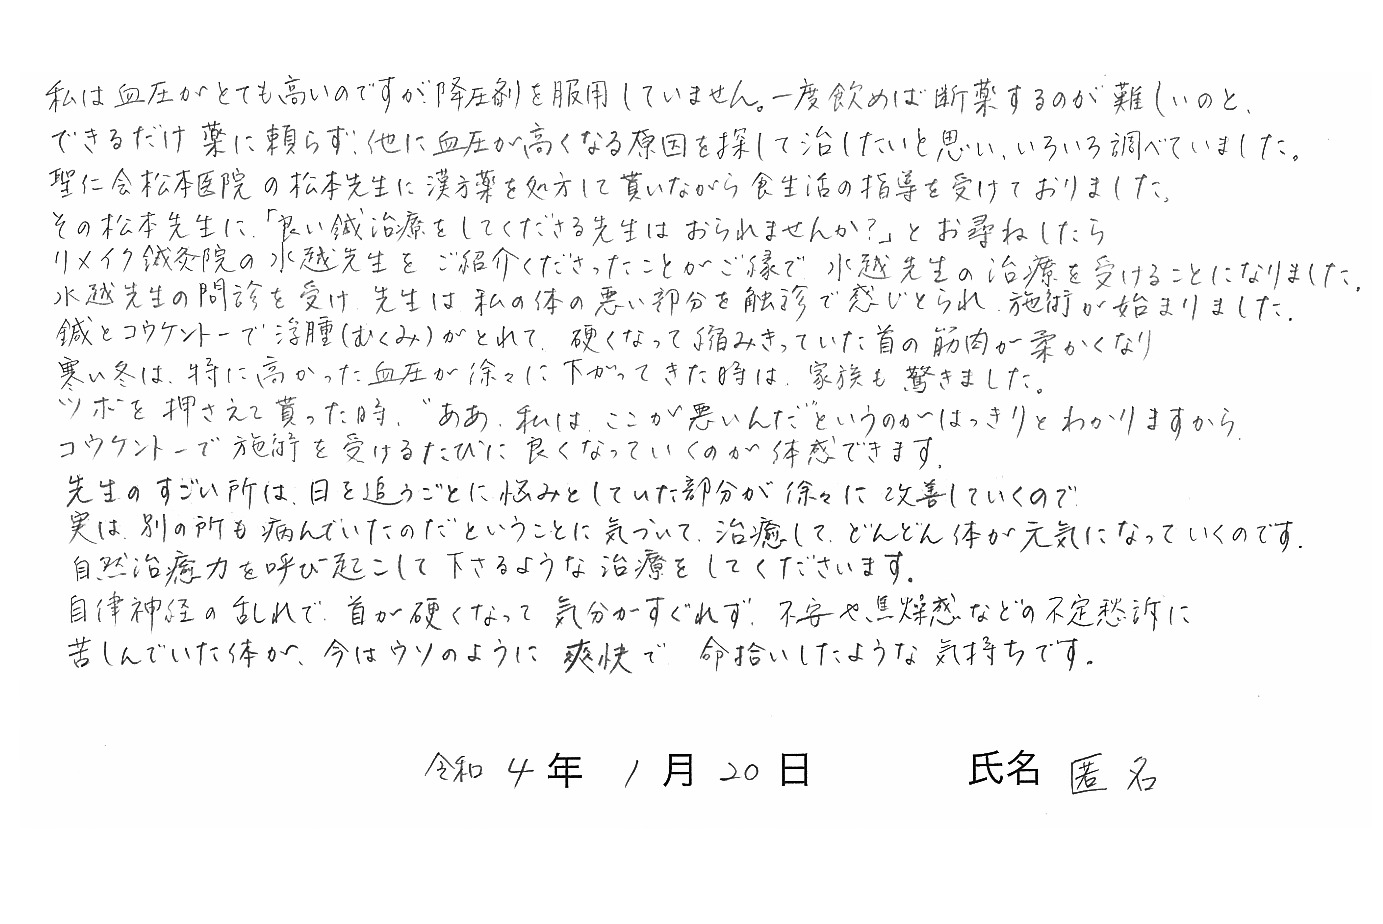 私は血圧がとても高いのですが、降圧剤を服用していません。一度飲めば断薬するのが難しいのと、
できるだけ薬に頼らず、他に血圧が高くなる原因を探して治したいと思い、いろいろ調べていました。
聖仁会松本医院の松本先生に漢方薬を処方して貰いながら食生活の指導を受けておりました。
その松本先生に、「良い鍼治療をしてくださる先生はおられませんか?」とお尋ねしたら
リメイク鍼灸院の水越先生をご紹介くださったことがご縁で、水越先生の治療を受けることになりました。
水越先生の問診を受け、先生は私の体の悪い部分を触診で感じとられ、施術が始まりました。
鍼とコウケントーで浮腫(むくみ)がとれて、硬くなって縮みきっていた首の筋肉が柔かくなり
寒い冬は、特に高かった血圧が徐々に下がってきた時は、家族も驚きました。
ツボを押さえて貰った時、“ああ、私は、ここが悪いんだ”というのがはっきりとわかりますから、
コウケントーで施術を受けるたびに良くなっていくのが体感できます。
先生のすごい所は、日を追うごとに悩みとしていた部分が徐々に改善していくので
実は、別の所も病んでいたのだということに気づいて、治癒して、どんどん体が元気になっていくのです。
自然治癒力を呼び起こして下さるような治療をしてくださいます。
自律神経の乱れで、首が硬くなって気分がすぐれず、不安や焦燥感などの不定愁訴に
苦しんでいた体が、今はウソのように爽快で、命拾いしたような気持ちです。
令和4年1月20日 氏名 匿名